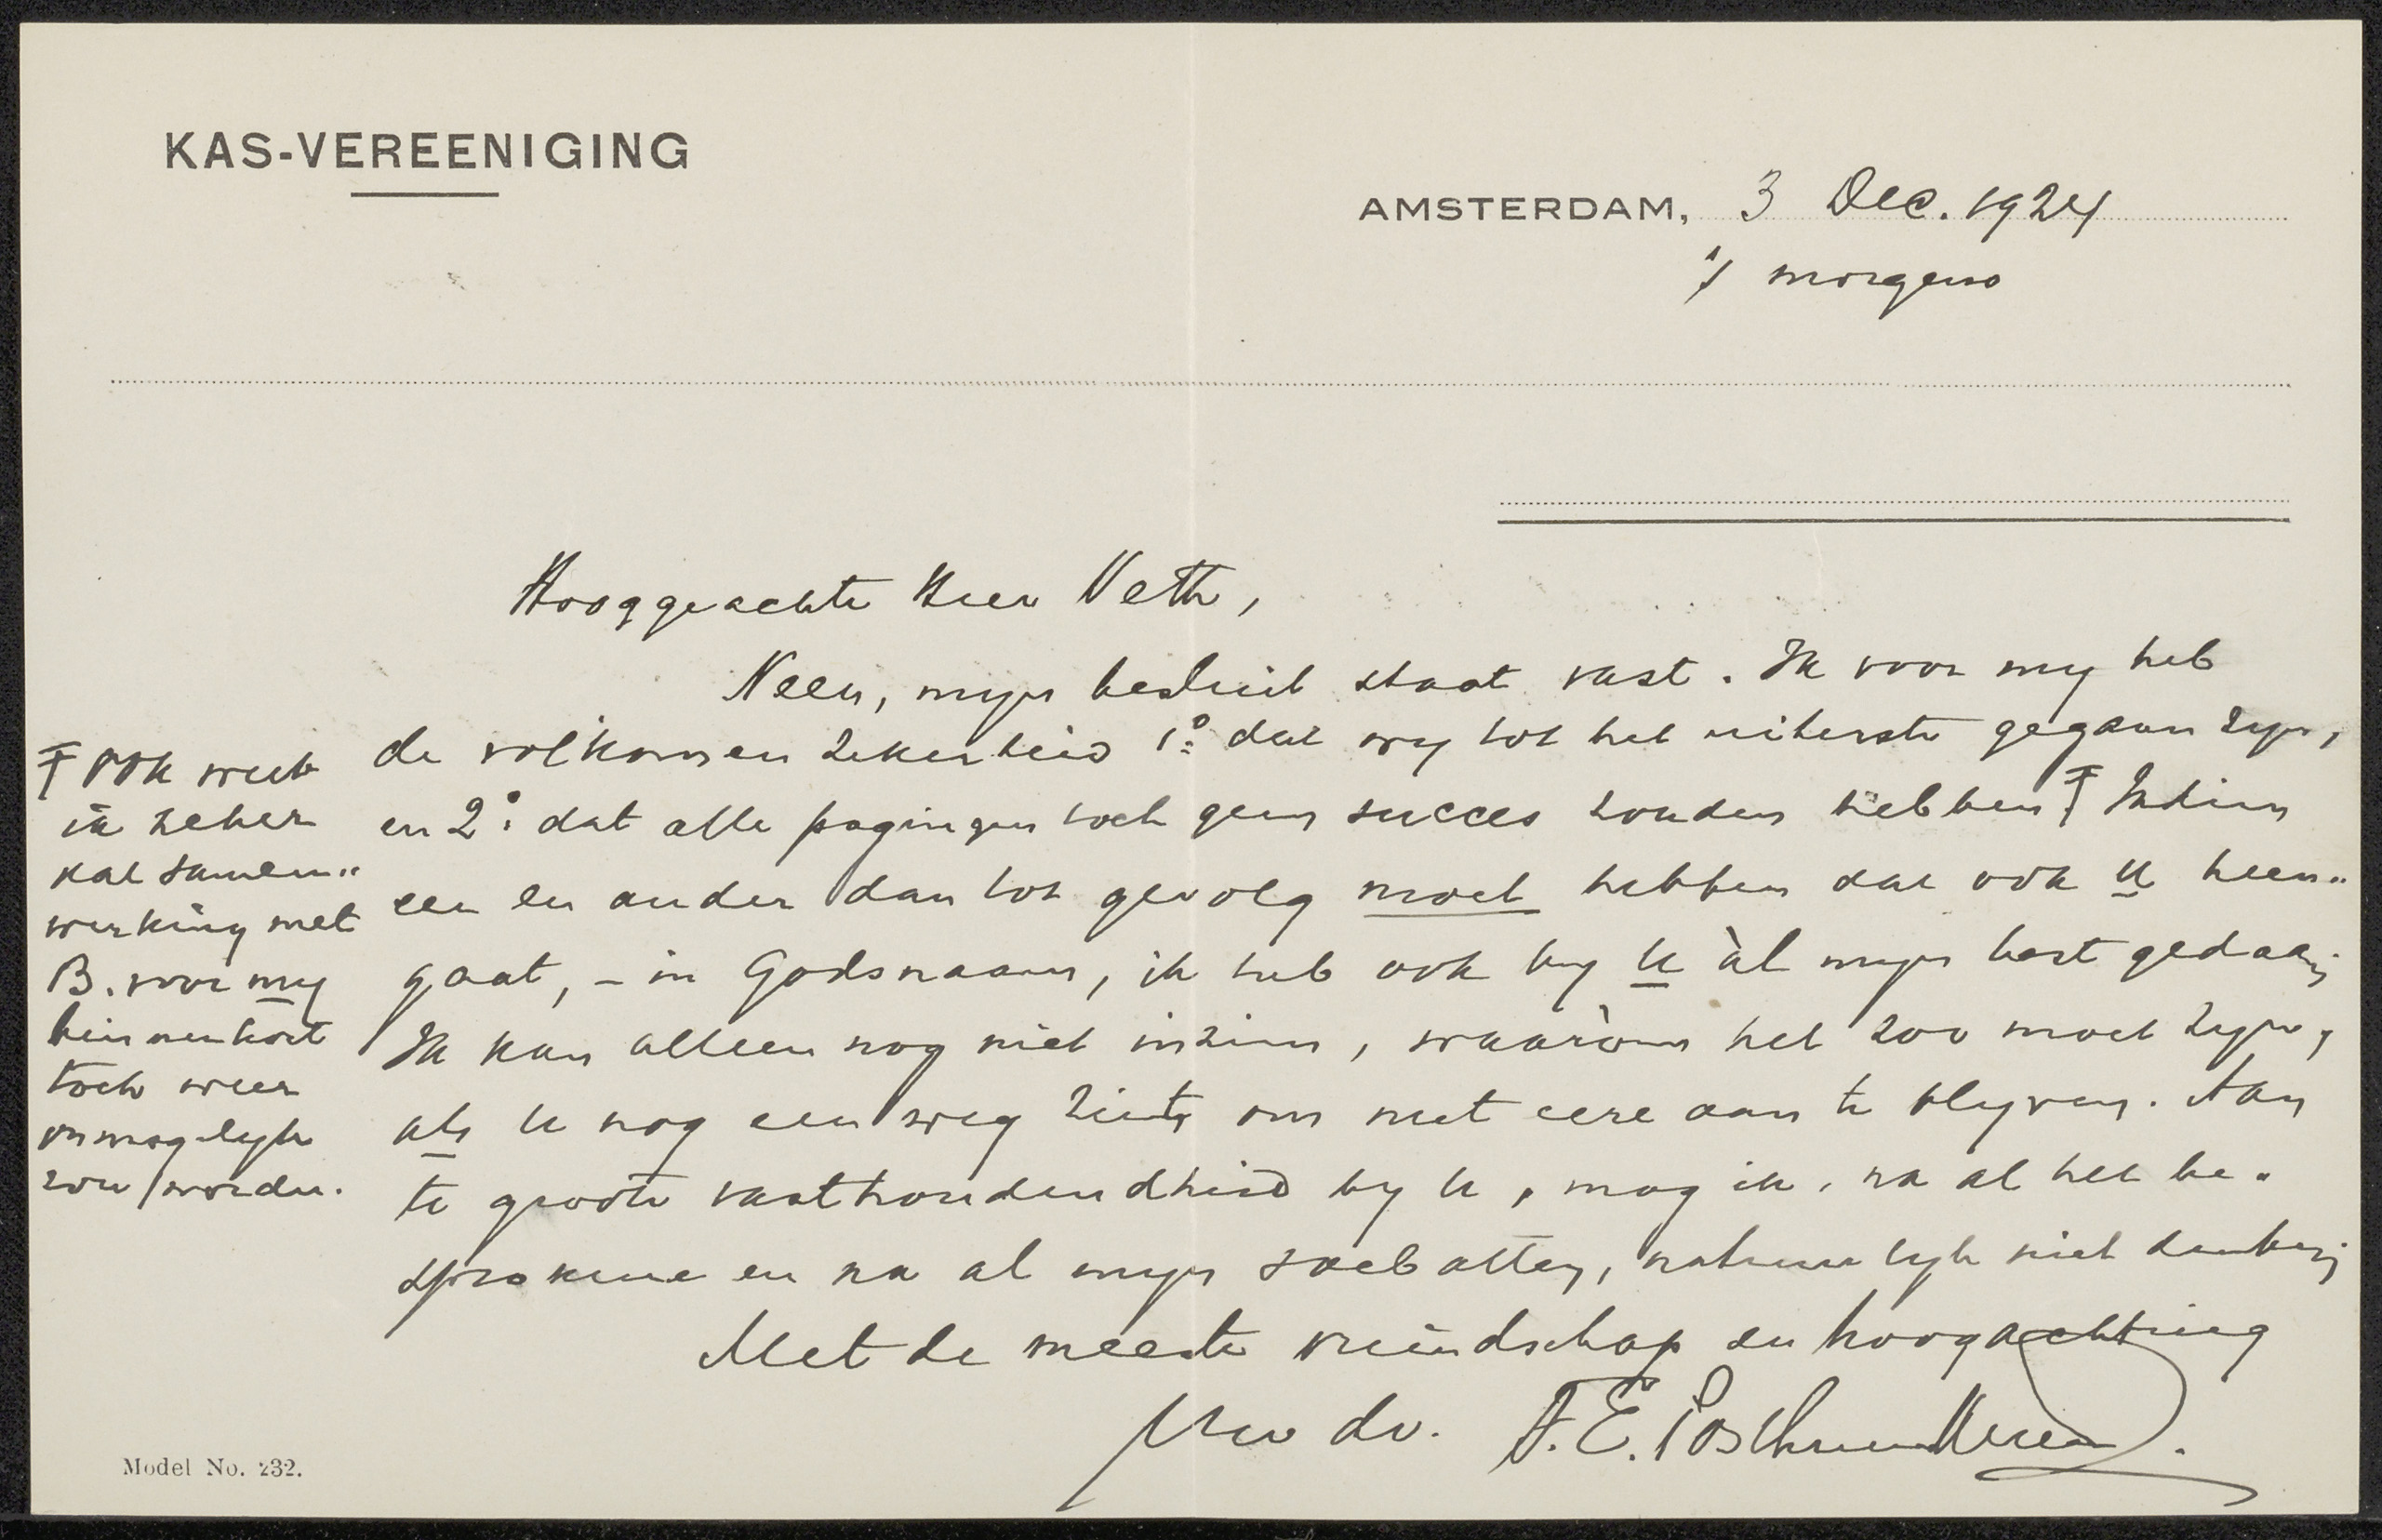 KAS-VEREENIGING
AMSTERDAM, 3 Dec. 1924
's morgens
Hooggeachte Heer Veth,
Neen, mijn besluit staat vast. Ik voor mij heb
de volkomen zekerheid 1º dat wij tot het uiterste gegaan zijn,
en 2º dat alle pogingen toch geen succes zouden hebben Ŧ Indien
een en ander dan tot gevolg moet hebben dat ook U heen„
gaat, – in Godsnaam, ik heb ook bij U àl mijn best gedaan;
Ik kan alleen nog niet inzien, waaròm het zoo moet zijn,
als U nog een weg ziet, om met eere aan te blijven. Aan
te groote vasthoudendheid bij U, mag ik, na al het be„
sprokene en na al mijn soebatten, natuurlijk niet denken;
Met de meeste vriendschap en hoogachting
Uw dv. F.E. Posthumus Meyes.
Ŧ Ook weet
ik zeker
dat samen„
werking met
B. voor mij
binnenkort
toch weer
onmogelijk
zou worden.
Model No. 232.